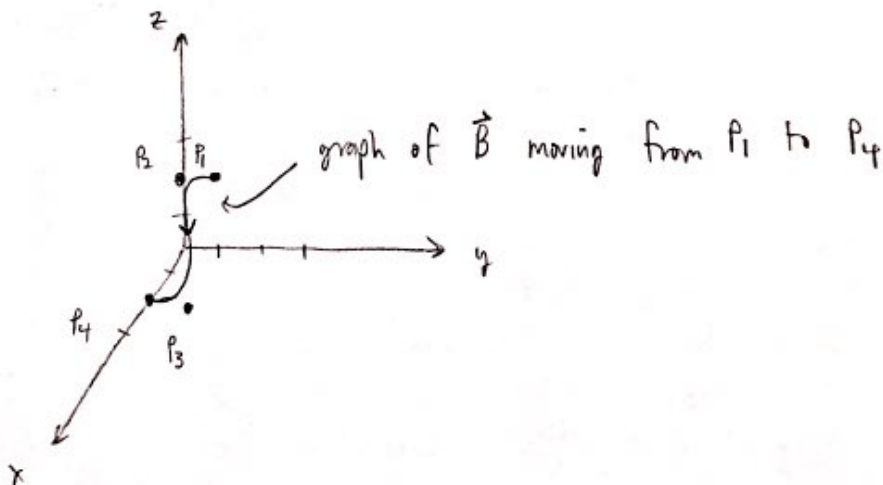 z
P₂ P₁
graph of B⃗ moving from P₁ to P₄
y
P₄
P₃
x